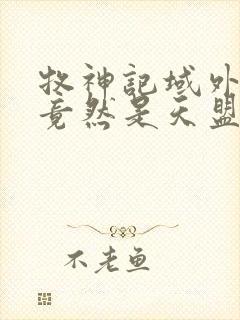 牧神记域外
竟然是天盟
不老鱼